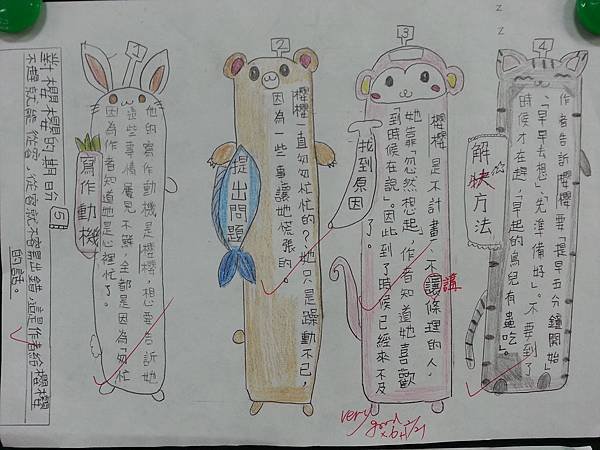 1
他的寫作動機是櫻櫻,想要告訴她
這些事情屢見不鮮,全都是因為「匆忙
因為作者知道她是心裡忙了。
寫作動機
2
櫻櫻一直匆匆忙忙的?她只是躁動不已,
因為一些事讓她慌張的。
提出問題
3
櫻櫻是不計畫,不讓條理的人,
講
她靠「忽然想起」,作者知道她喜歡
「到時候在說」。因此到了時候已經來不及
了。
找到原因
4
作者告訴櫻櫻要「提早五分鐘開始」
「早早去想」,「先準備好」。不要到了
時候才在趕,「早起的鳥兒有蟲吃」。
解決方法
5
對櫻櫻的期盼
不趕就能從容,從容就不容易出錯,這是作者給櫻櫻
的話。
very
good
z
z